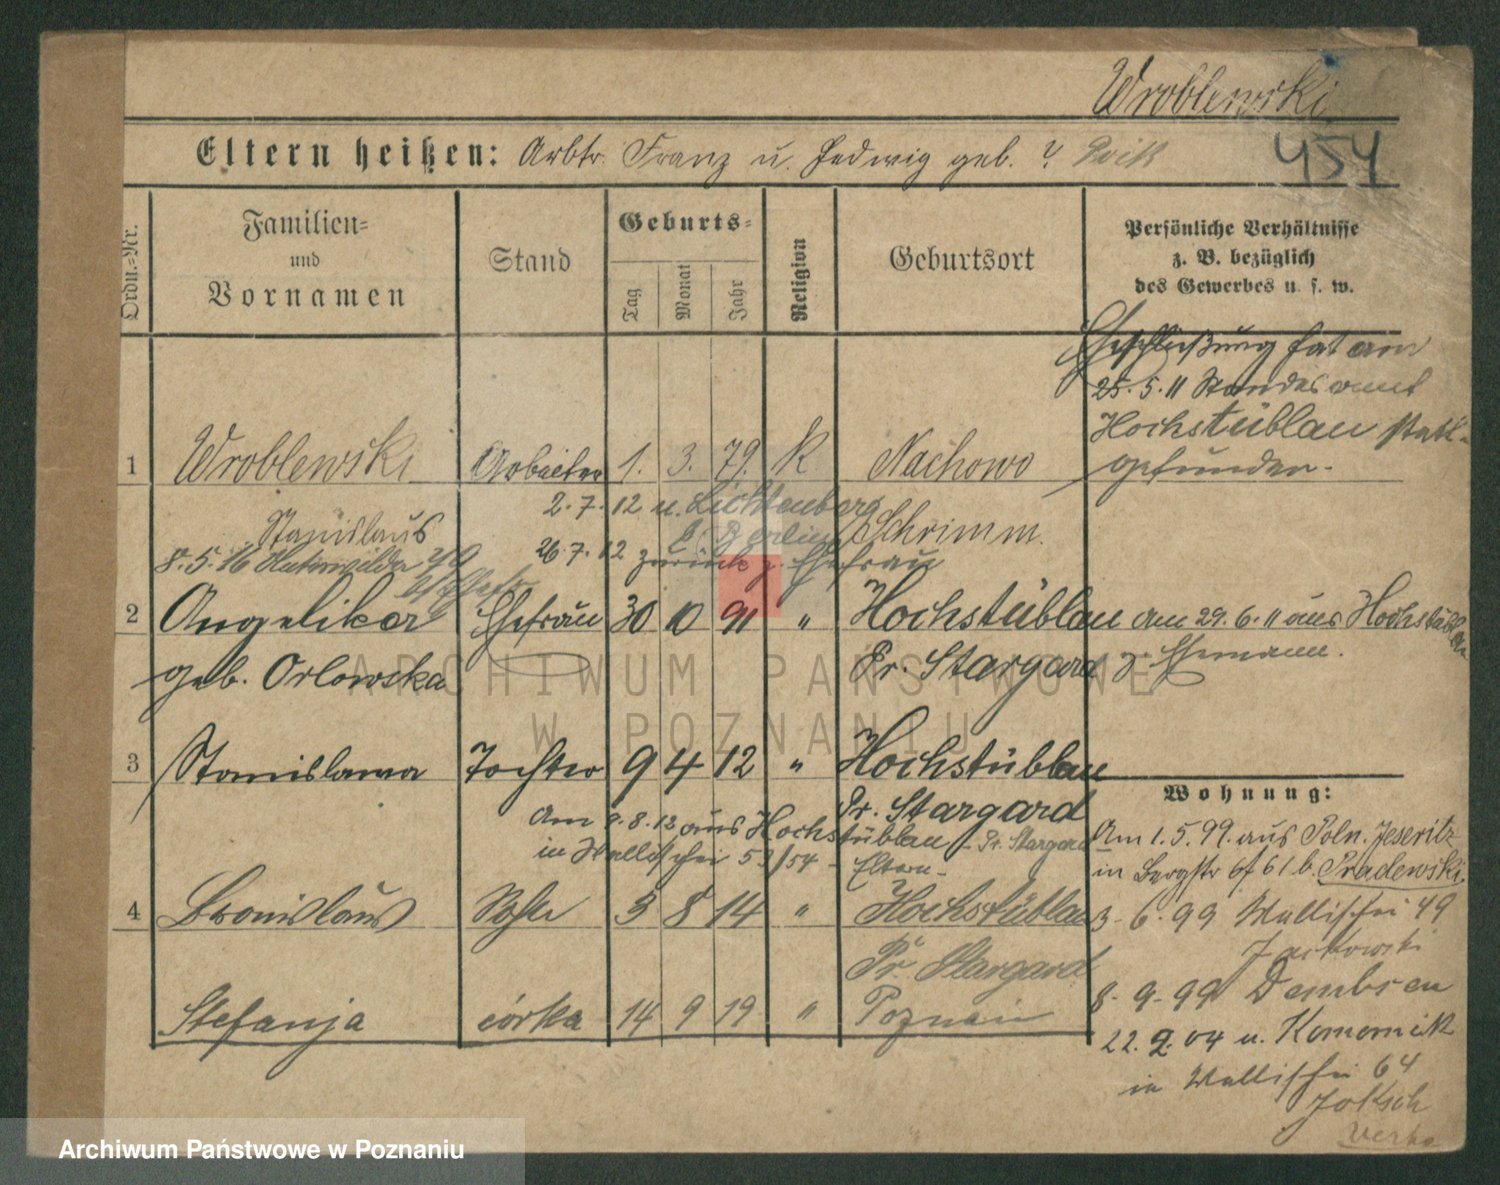 Wroblewski
454
Eltern heißen: Arbtr. Franz u. Hedwig geb. ?
Ordn.-Nr.
Familien- und Vornamen
Stand
Geburts-
Tag Monat Jahr
Religion
Geburtsort
Persönliche Verhältnisse
z. B. bezüglich
des Gewerbes u. s. w.
Eheschließung hat am
25.5.11 Standesamt
Hochstüblau statt-
gefunden.
1 Wroblewski Arbeiter 1. 3. 79. K Nachowo
Stanislaus Schrimm.
2.7.12 u. Lichtenberg
b/ Berlin
26.7.12 zurück z. Ehefrau
8.5.16
2 Angelika Ehefrau 30 10 91 " Hochstüblau am 29.6.11 aus Hochstüblau
geb. Orlowska Pr. Stargard z. Ehemann.
3 Stanislawa Tochter 9 4 12 " Hochstüblau
Pr. Stargard
Am 9.8.12 aus Hochstüblau - Pr. Stargard
in Wallischei 53/54 - Eltern -
4 Bronislaus Sohn 3 8 14 " Hochstüblau
Pr. Stargard
Stefanja córka 14 9 19 " Poznań
Wohnung:
Am 1.5.99. aus Poln. Jeseritz
in Bergstr 6 b.
3.6.99 Wallischei 49
8.9.99 Dembsen
22.9.04 u. Komornik
in Wallischei 64
ARCHIWUM PAŃSTWOWE
W POZNANIU
Archiwum Państwowe w Poznaniu